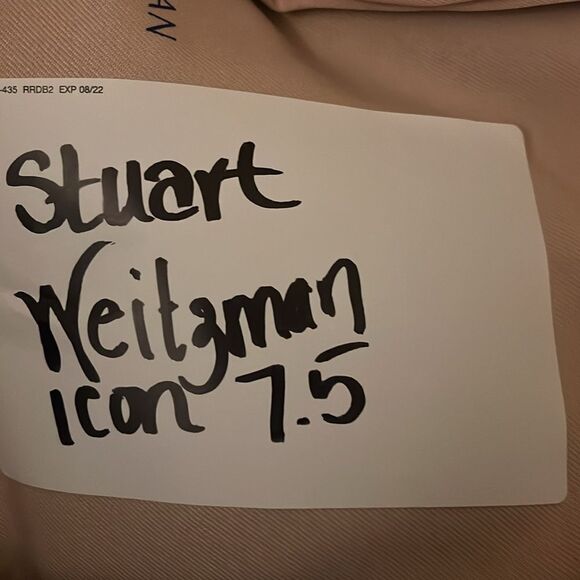 AN
-435 RRDB2 EXP 08/22
Stuart
Weitzman
icon 7.5